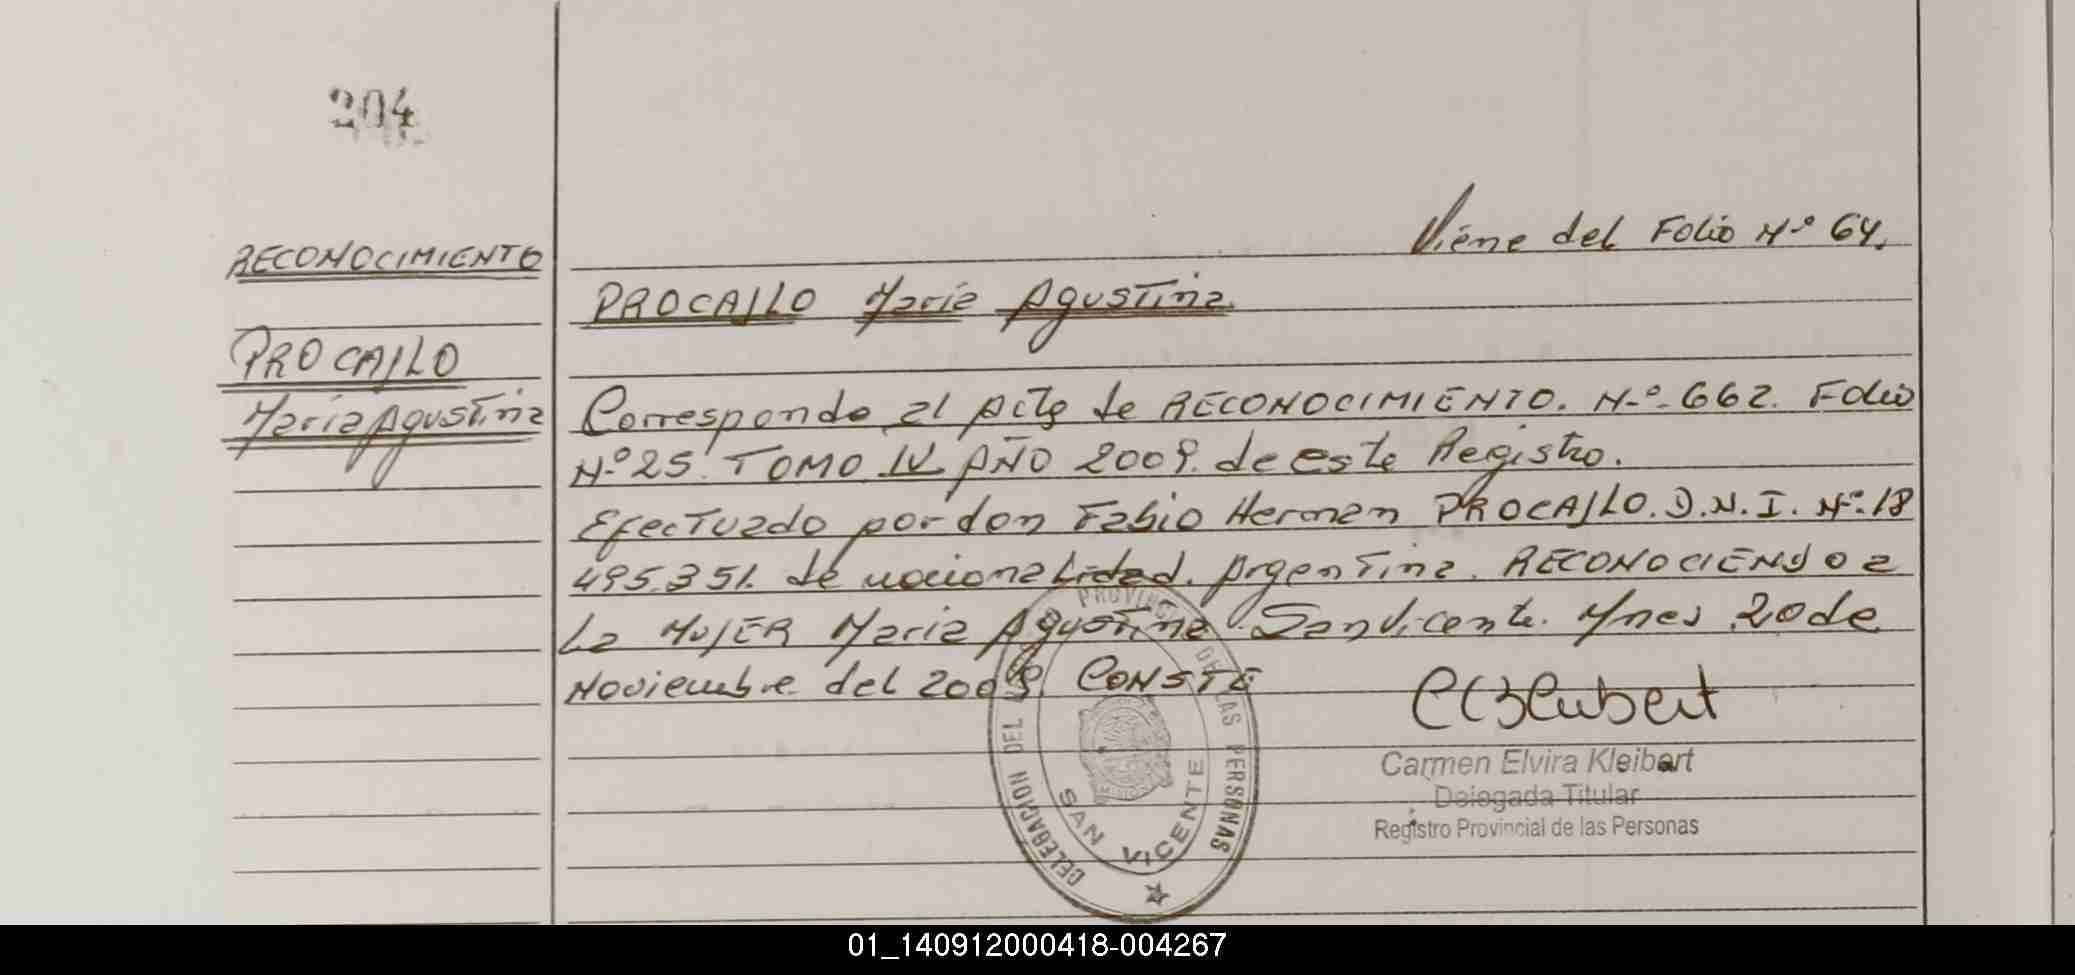 204
Viene del Folio Nº 64.
RECONOCIMIENTO
PROCAJLO María Agustina.
PROCAJLO
María Agustina
Corresponde al Acta de RECONOCIMIENTO. Nº 662. Folio
Nº 25. TOMO IV AÑO 2009. de este Registro.
Efectuado por don Fabio Hernan PROCAJLO. D.N.I. Nº: 18
495.351. de nacionalidad Argentina. RECONOCIENDO a
La MUJER María Agustina. San Vicente. Mnes 20 de
Noviembre del 2009 CONSTE
Carmen Elvira Kleibert
Delegada Titular
Registro Provincial de las Personas
DELEGACION DEL PROVINCIAL DE LAS PERSONAS
SAN VICENTE
01_140912000418-004267